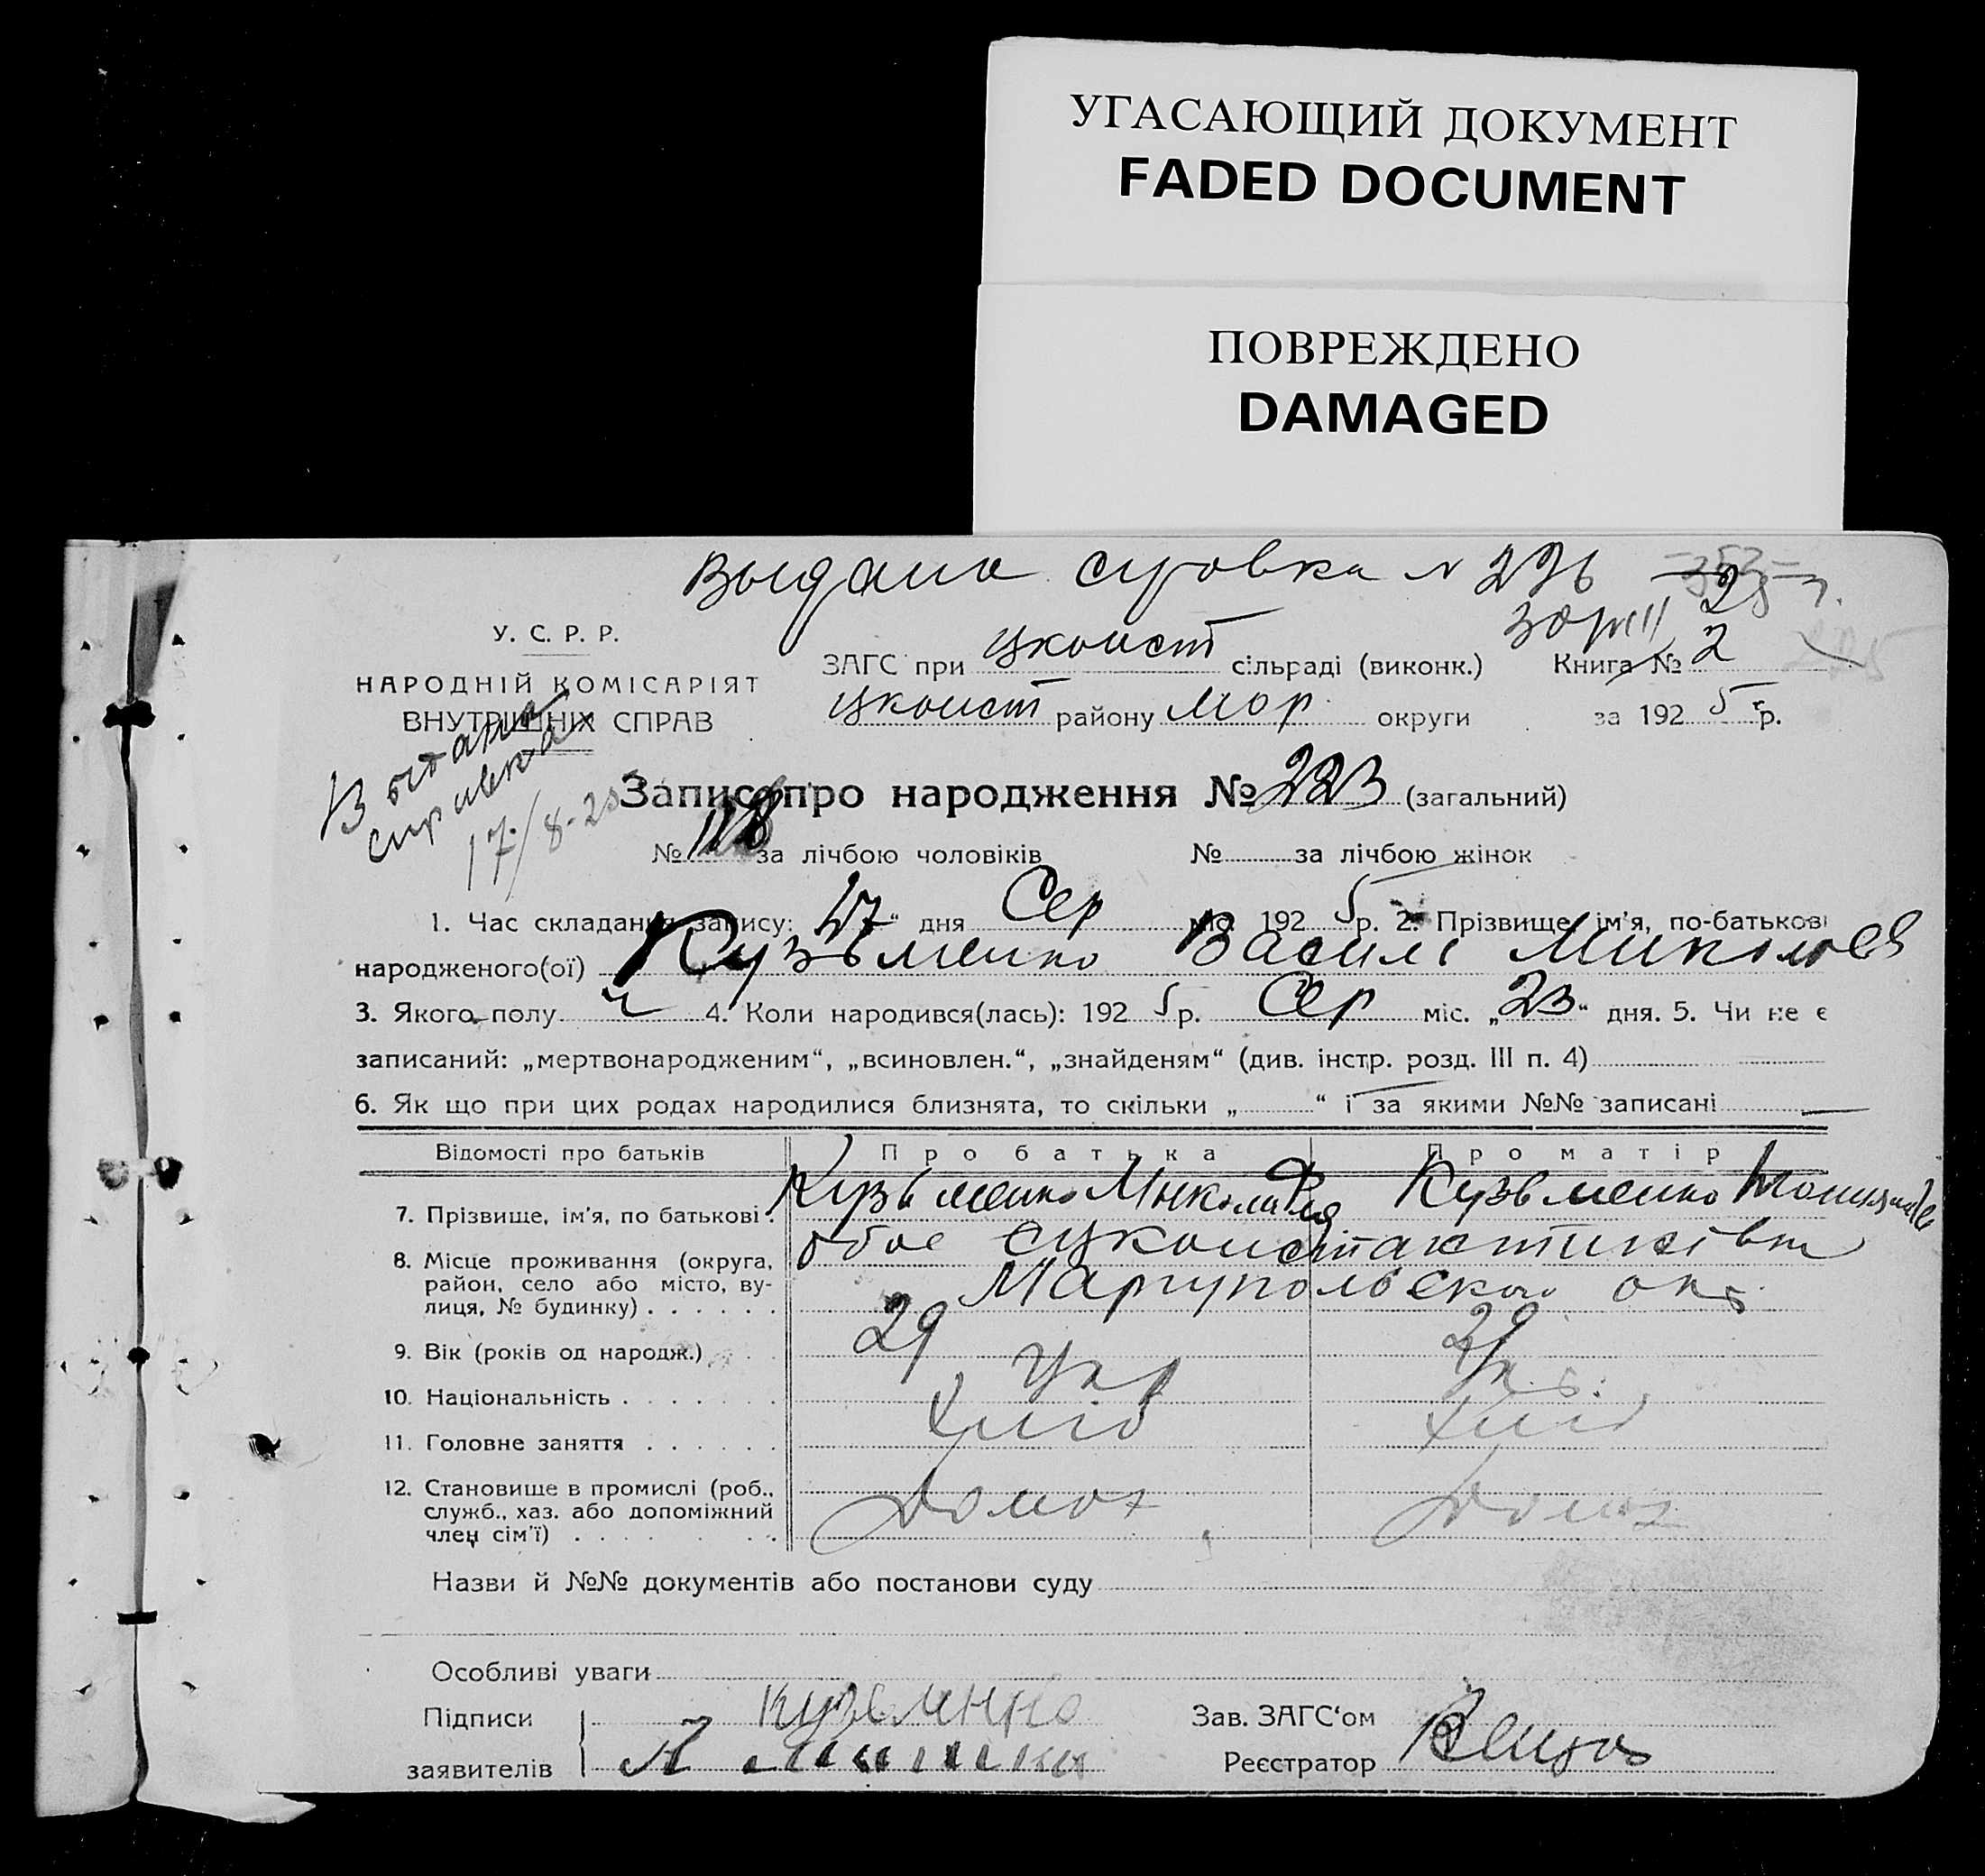 УГАСАЮЩИЙ ДОКУМЕНТ
FADED DOCUMENT
ПОВРЕЖДЕНО
DAMAGED
Выдана справка N 236
У. С. Р. Р.
НАРОДНІЙ КОМІСАРІЯТ
ВНУТРІШНІХ СПРАВ
Выдана
справка
17/8-25
ЗАГС при Цконст сільраді (виконк.) Книга № 2
Цконст району Мар. округи за 1925 р.
Запис про народження № 223 (загальний)
№ 118 за лічбою чоловіків № за лічбою жінок
1. Час складання запису: „27“ дня Сер міс. 1925 р. 2. Прізвище, ім'я, по-батькові
народженого(ої) Кузьменко Василь Миколаев
3. Якого полу ч 4. Коли народився(лась): 1925 р. Сер міс. „23“ дня. 5. Чи не є
записаний: „мертвонародженим“, „всиновлен.“, „знайденям“ (див. інстр. розд. III п. 4)
6. Як що при цих родах народилися близнята, то скільки „ “ і за якими №№ записані
Відомості про батьків Про батька Про матір
7. Прізвище, ім'я, по батькові. Кузьменко Микола Кузьменко
8. Місце проживання (округа, район, село або місто, вулиця, № будинку) обое
Маріупольскои окр.
9. Вік (років од народж.) 29 29
10. Національність Укр Укр.
11. Головне заняття Хліб Хліб
12. Становище в промислі (роб., служб., хаз. або допоміжний член сім'ї) Домог Домог
Назви й №№ документів або постанови суду
Особливі уваги
Підписи Кузьменко Зав. ЗАГС‘ом
заявителів Реєстратор